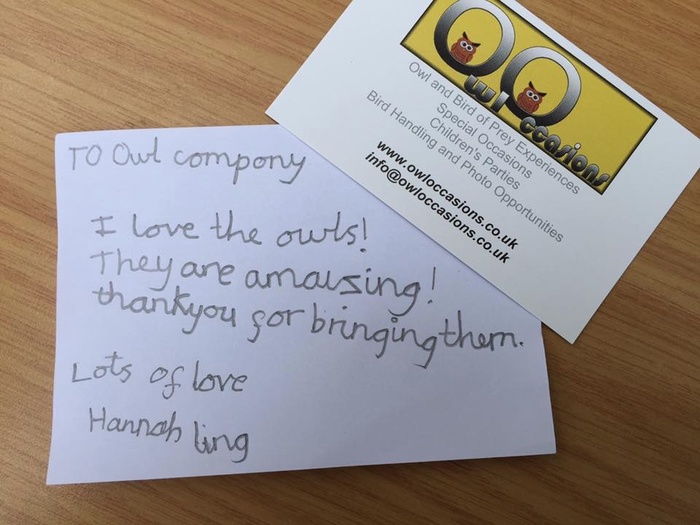 Owl Occasions
Owl and Bird of Prey Experiences
Special Occasions
Children's Parties
Bird Handling and Photo Opportunities
www.owloccasions.co.uk
info@owloccasions.co.uk
TO Owl compony
I love the owls!
They are amauzing!
thankyou for bringing them.
Lots of love
Hannah ling